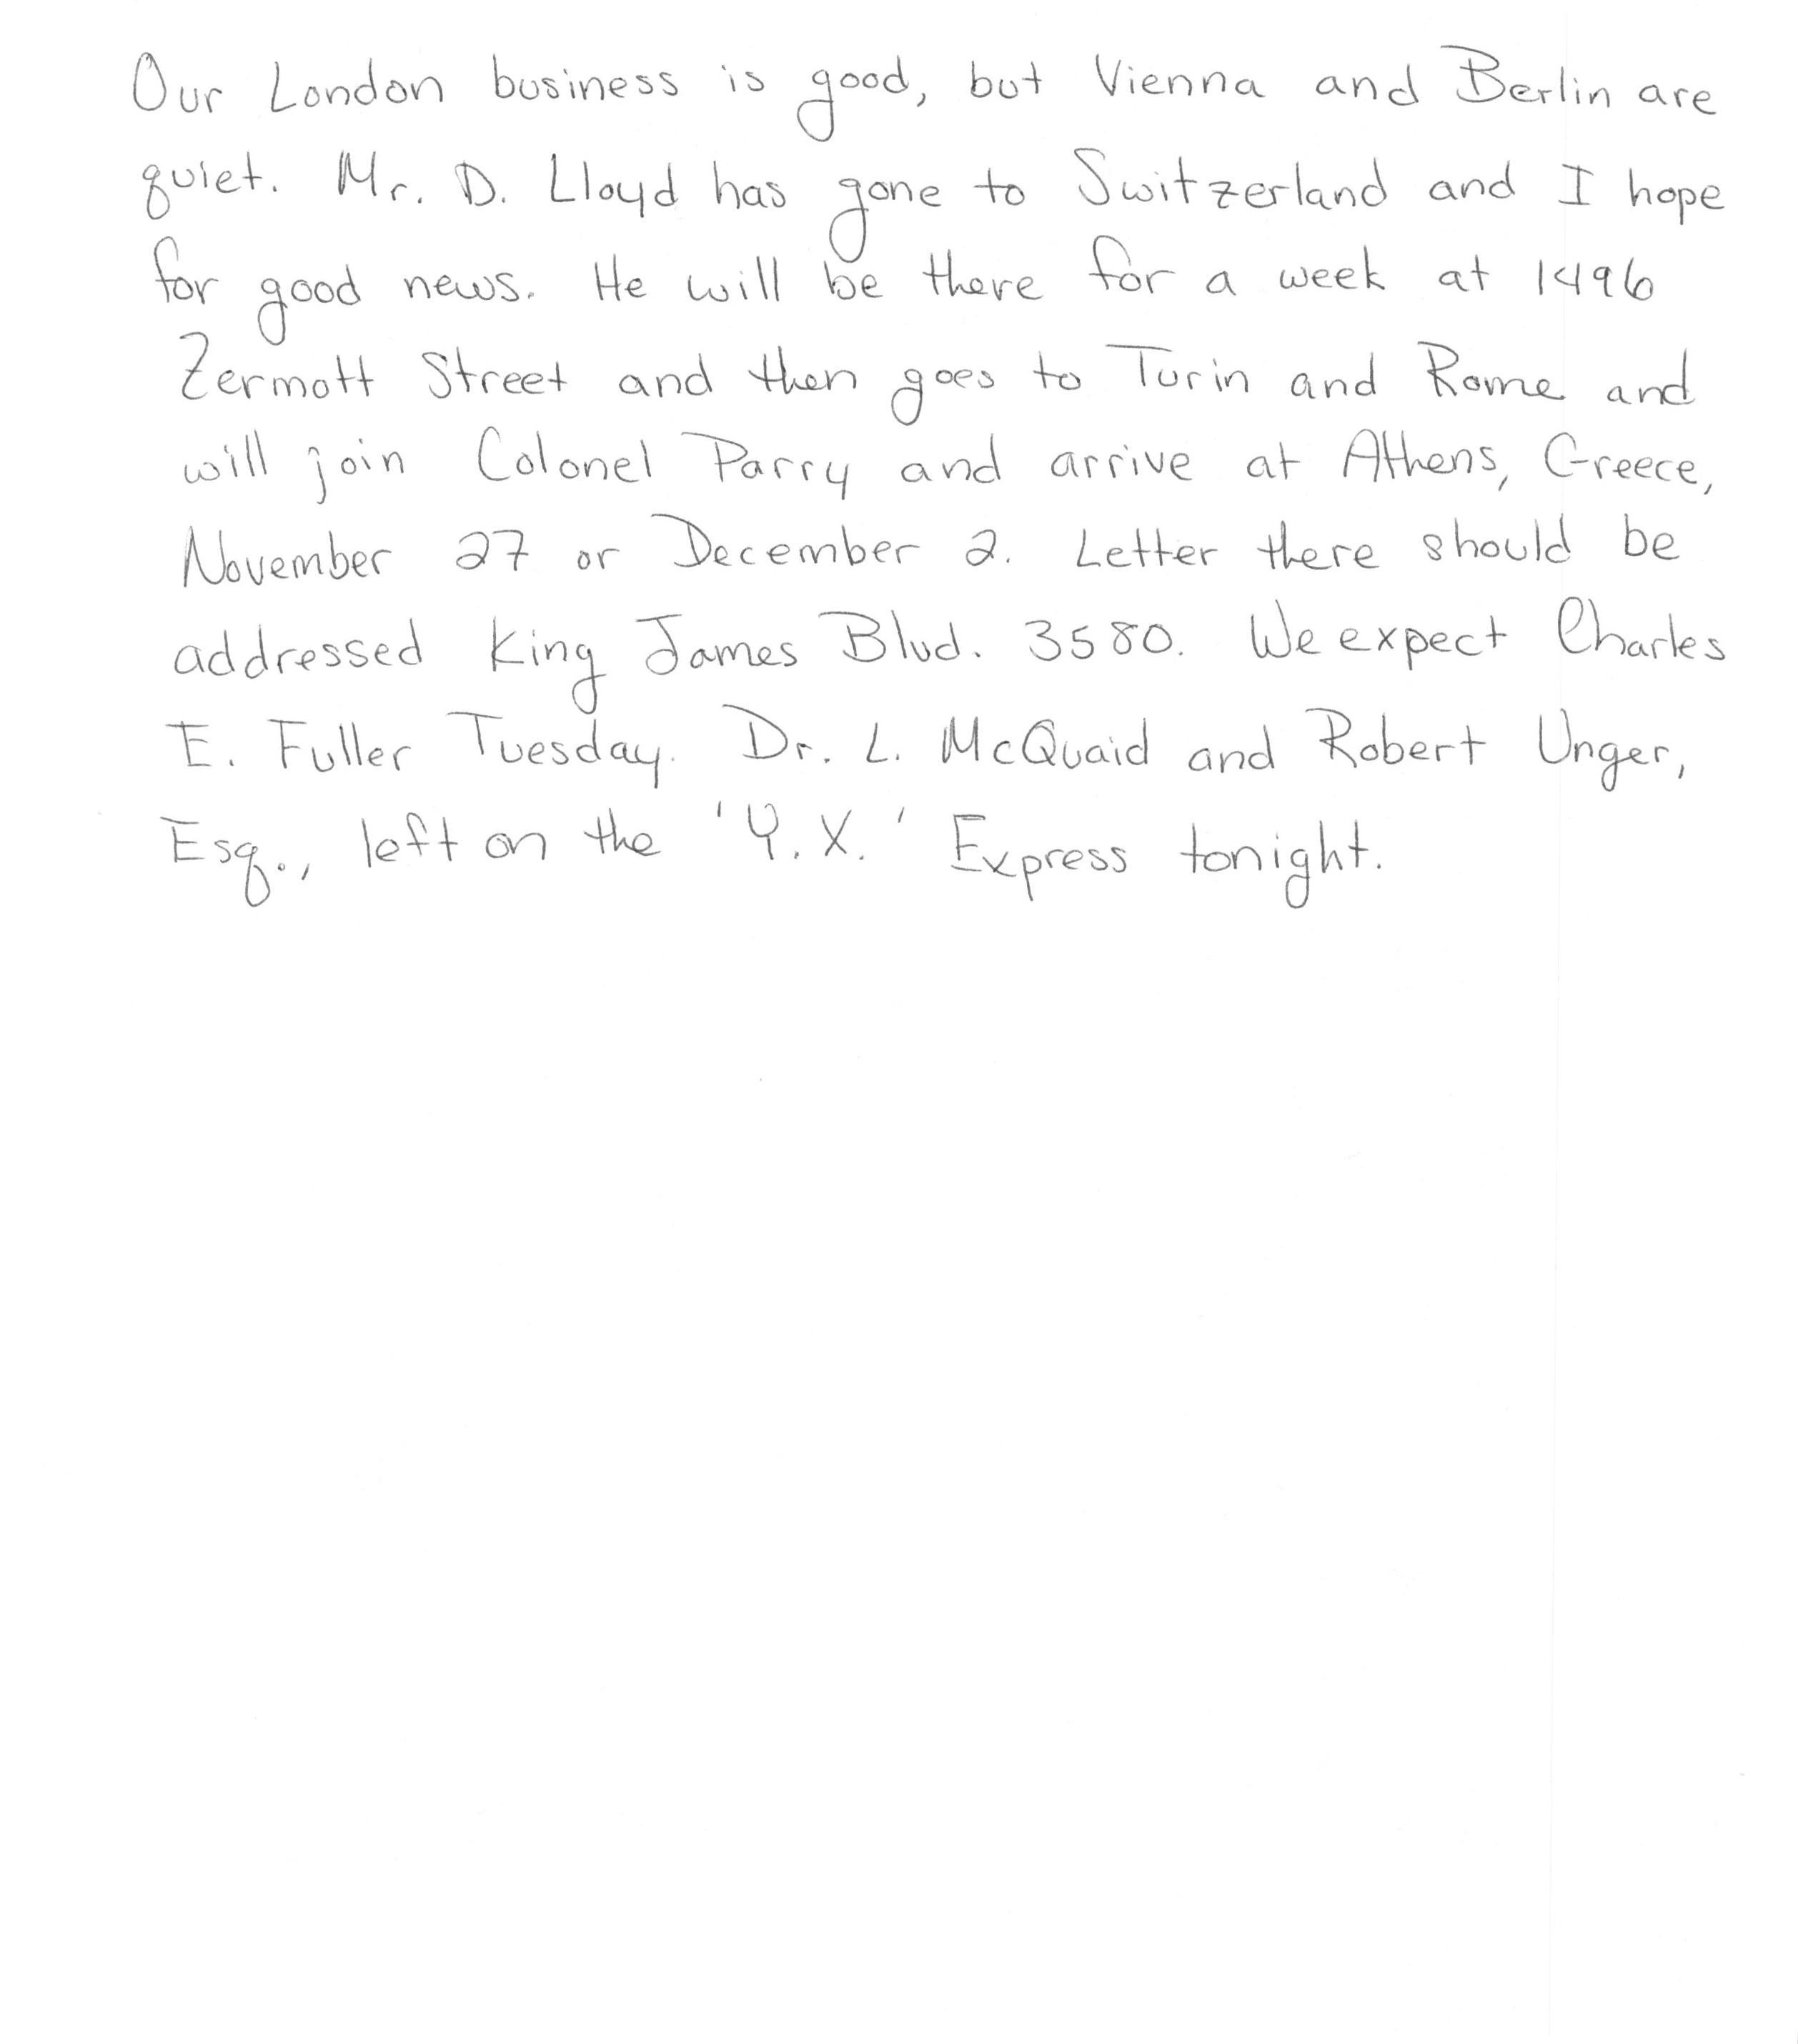 Our London business is good, but Vienna and Berlin are
quiet. Mr. D. Lloyd has gone to Switzerland and I hope
for good news. He will be there for a week at 1496
Zermott Street and then goes to Turin and Rome and
will join Colonel Parry and arrive at Athens, Greece,
November 27 or December 2. Letter there should be
addressed King James Blvd. 3580. We expect Charles
E. Fuller Tuesday. Dr. L. McQuaid and Robert Unger,
Esq., left on the 'Y.X.' Express tonight.